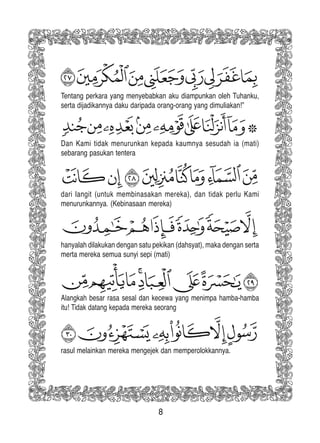 بِمَا غَفَرَ لِي رَبِّي وَجَعَلَنِي مِنَ ٱلْمُكْرَمِينَ ٢٧
Tentang perkara yang menyebabkan aku diampunkan oleh Tuhanku,
serta dijadikannya daku daripada orang-orang yang dimuliakan!"
۞ وَمَآ أَنزَلْنَا عَلَىٰ قَوْمِهِۦ مِنۢ بَعْدِهِۦ مِن جُندٍ
Dan Kami tidak menurunkan kepada kaumnya sesudah ia (mati)
sebarang pasukan tentera
مِّنَ ٱلسَّمَآءِ وَمَا كُنَّا مُنزِلِينَ ٢٨ إِن كَانَتْ
dari langit (untuk membinasakan mereka), dan tidak perlu Kami
menurunkannya. (Kebinasaan mereka)
إِلَّا صَيْحَةً وَٰحِدَةً فَإِذَا هُمْ خَٰمِدُونَ
hanyalah dilakukan dengan satu pekikan (dahsyat), maka dengan serta
merta mereka semua sunyi sepi (mati)
٢٩ يَٰحَسْرَةً عَلَى ٱلْعِبَادِ ۚ مَا يَأْتِيهِم مِّن
Alangkah besar rasa sesal dan kecewa yang menimpa hamba-hamba
itu! Tidak datang kepada mereka seorang
رَّسُولٍ إِلَّا كَانُوا۟ بِهِۦ يَسْتَهْزِءُونَ ٣٠
rasul melainkan mereka mengejek dan memperolokkannya.
8